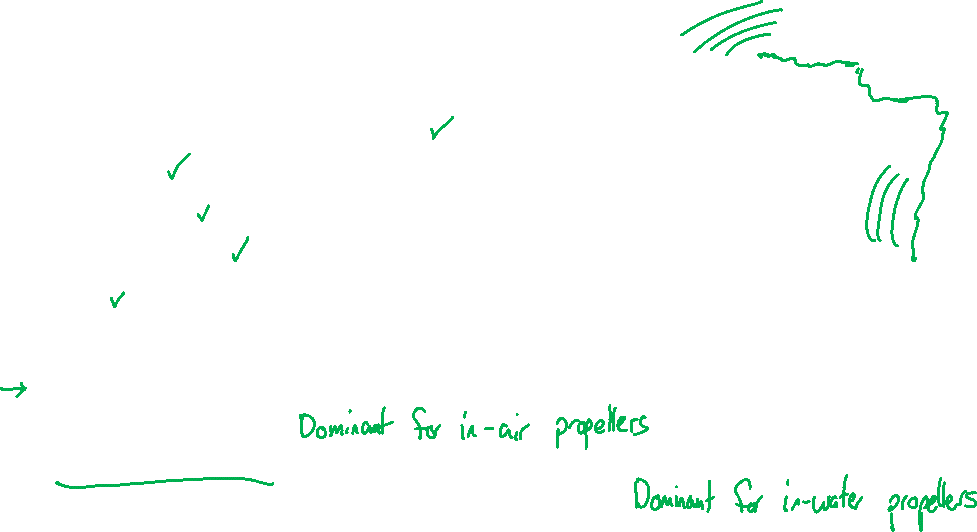 Dominant for in-air propellers
Dominant for in-water propellers